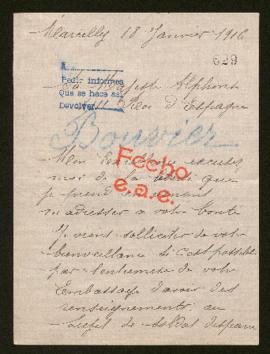 Marcilly 18 Janvier 1916
629
A
Pedir informes
Que se haga así
Devolver
Sa Majesté Alphonse
Roi d'Espagne
Bouvier
Fecho
e.a.e.
excusez
moi de la
que
je prend
m adresser a votre bonté
Je viens solliciter de votre
bienveillance si c'est possible
par l'entremise de votre
Embassade d'avoir des
renseignements au
sujet de soldat disparu